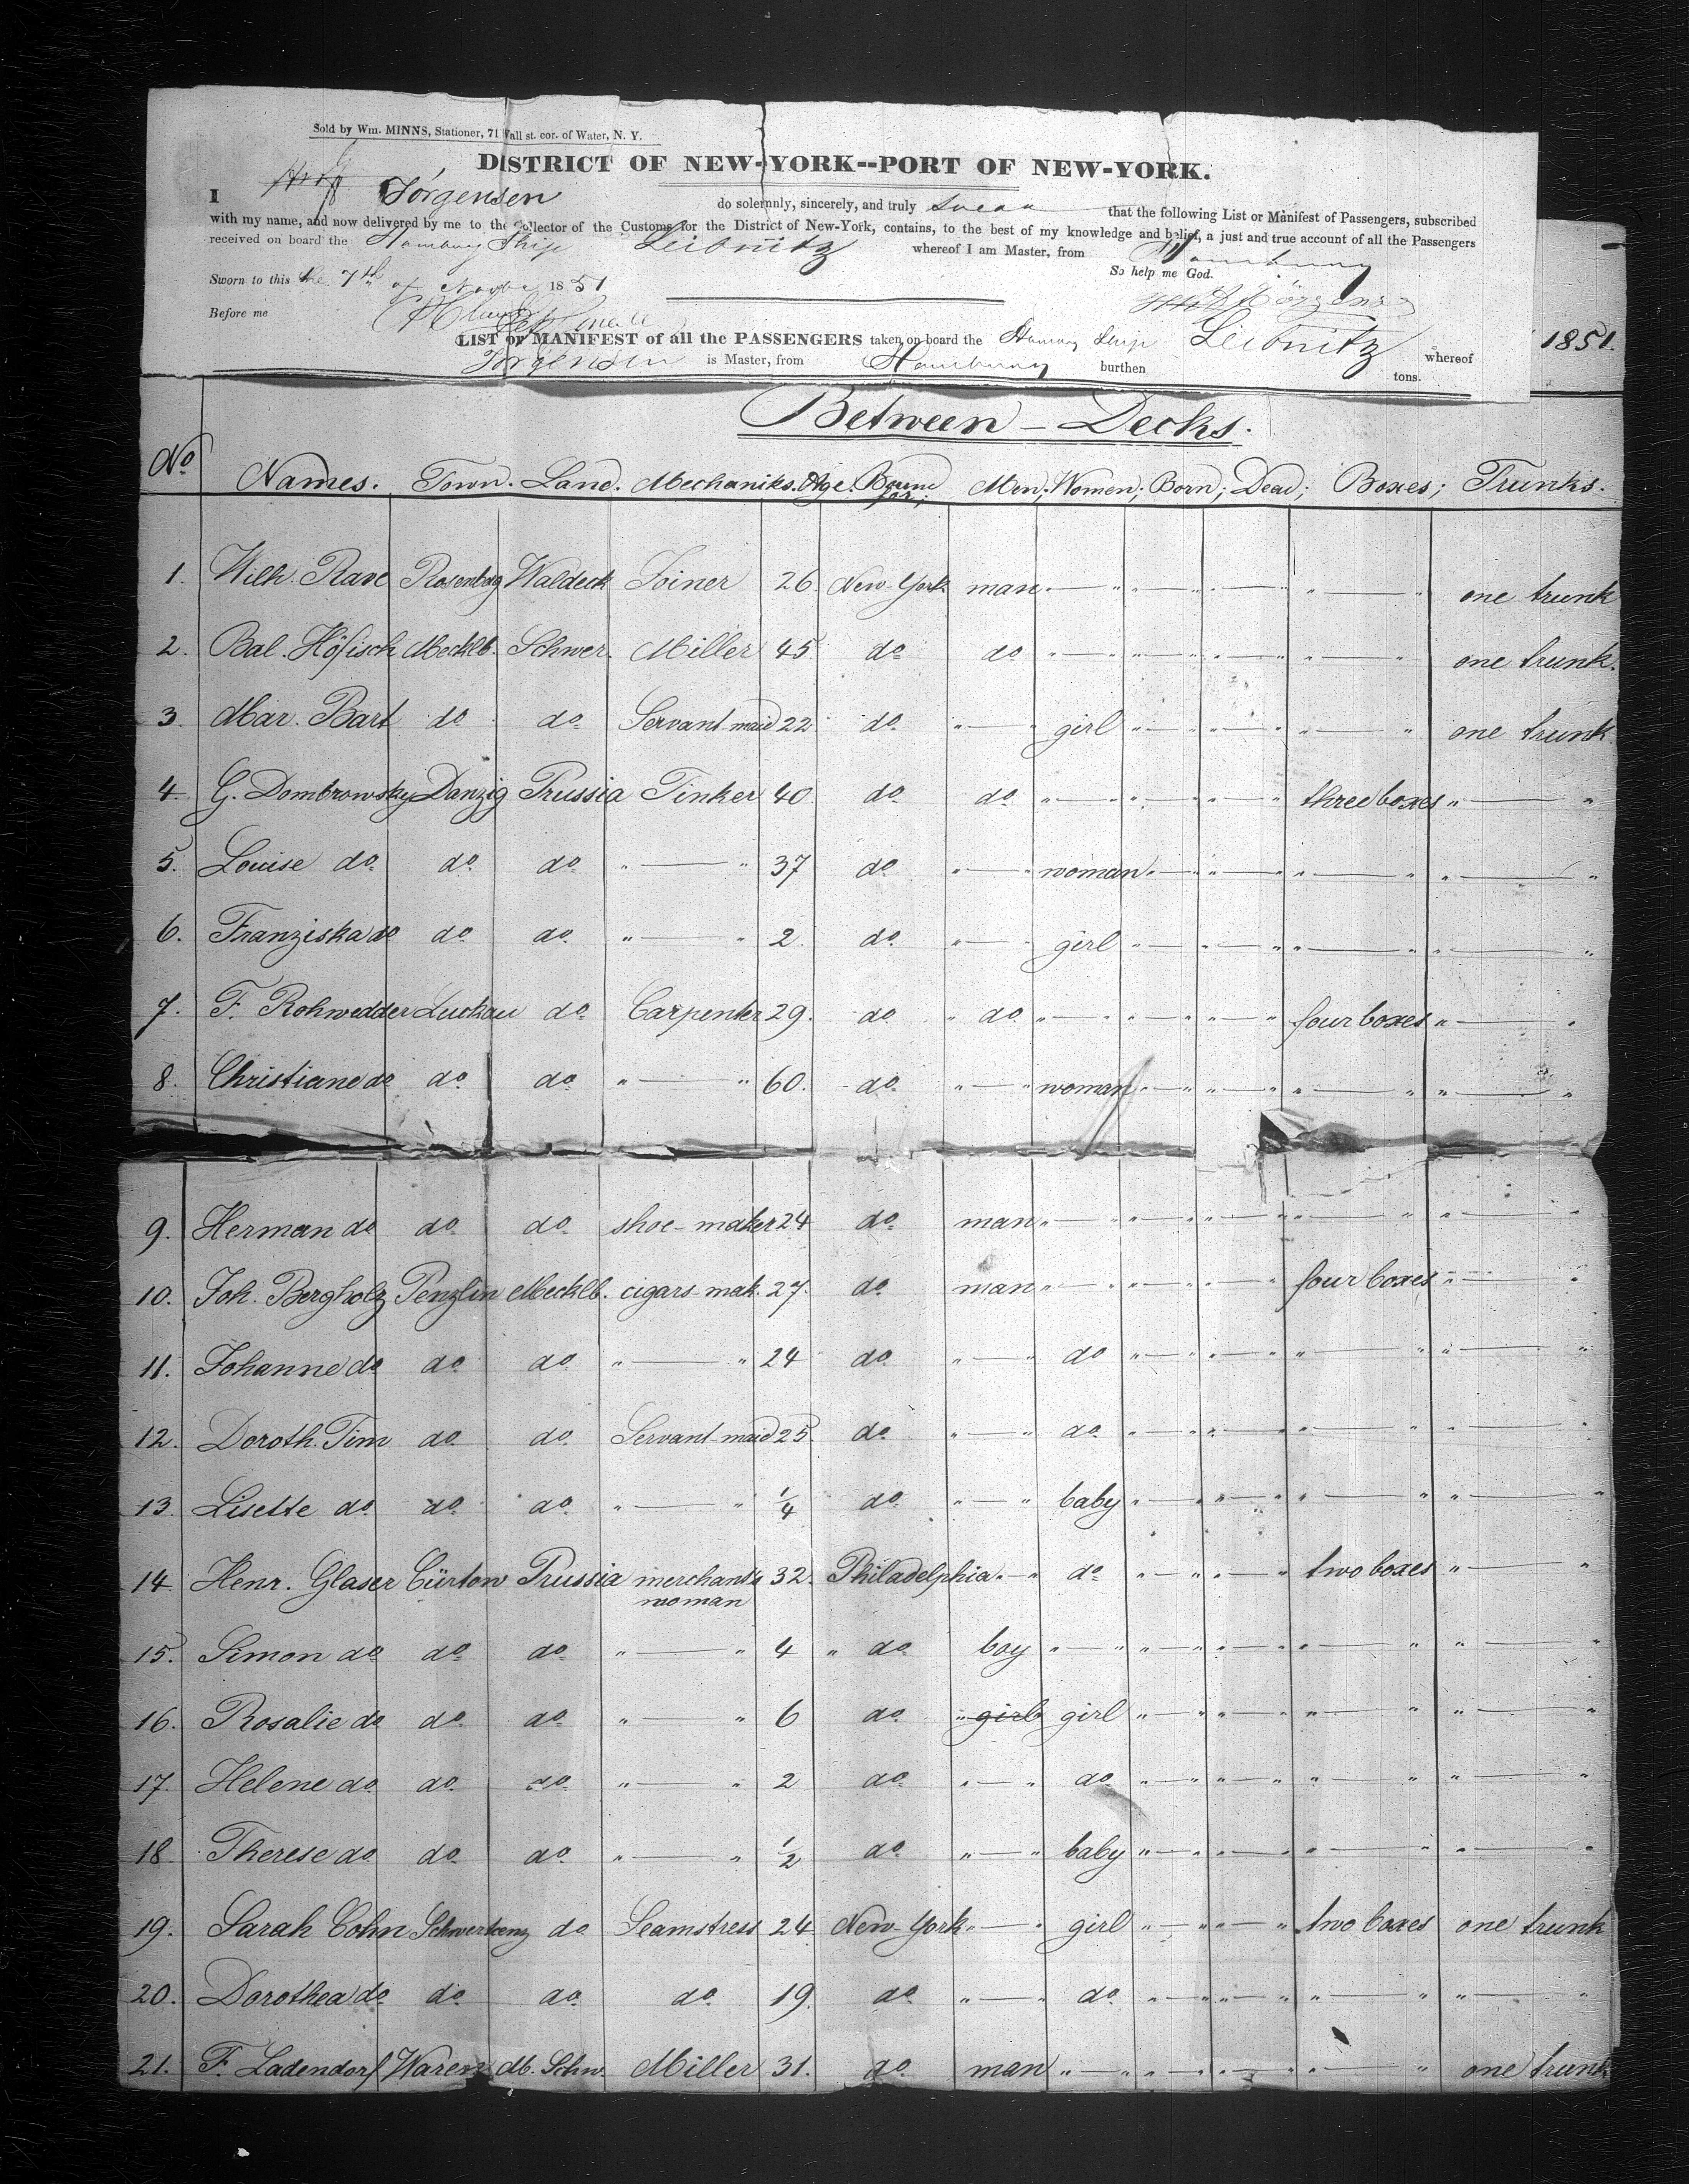 Sold by Wm. MINNS, Stationer, 71 Wall st. cor. of Water, N. Y.
DISTRICT OF NEW-YORK--PORT OF NEW-YORK.
I Jörgensen do solemnly, sincerely, and truly swear that the following List or Manifest of Passengers, subscribed
with my name, and now delivered by me to the Collector of the Customs for the District of New-York, contains, to the best of my knowledge and belief, a just and true account of all the Passengers
received on board the Hamburg Ship Leibnitz whereof I am Master, from Hamburg
Sworn to this the 7th of Novbr 1851 So help me God.
Before me Jörgensen
LIST or MANIFEST of all the PASSENGERS taken on board the Hamburg Ship Leibnitz whereof
Jörgensen is Master, from Hamburg burthen tons.
1851.
Between-Decks.
No Names. Town. Land. Mechaniks. Age. Bound for; Men; Women; Born; Dead; Boxes; Trunks.
1. Wilh. Rave Rosenberg Waldeck Joiner 26. New-York man " — " " — " " — " " — " one trunk
2. Bal. Höfisch Mecklb. Schwer. Miller 45. do do " — " " — " " — " " — " one trunk.
3. Mar. Bart do do Servant-maid 22. do " — " girl " — " " — " " — " one trunk.
4. G. Dombrowsky Danzig Prussia Tinker 40. do do " — " " — " " — " three boxes " — "
5. Louise do do do " — " 37 do " — " woman " — " " — " " — " " — "
6. Franziska do do do " — " 2. do " — " girl " — " " — " " — " " — "
7. F. Rohwedder Luckau do Carpenter 29. do " do " — " " — " " — " four boxes " — "
8. Christiane do do do " — " 60. do " — " woman " — " " — " " — " " — "
9. Herman do do do shoe-maker 24 do man " — " " — " " — " " — " " — "
10. Joh. Bergholz Penzlin Mecklb. cigars-mak. 27. do man " — " " — " " — " four boxes " — "
11. Johanne do do do " — " 24 do " — " do " — " " — " " — " " — "
12. Doroth. Tim do do Servant-maid 25. do " — " do " — " " — " " — " " — "
13. Lisette do do do " — " 1/4 do " — " baby " — " " — " " — " " — "
14. Henr. Glaser Cürtow Prussia merchant's woman 32. Philadelphia " — " do " — " " — " two boxes " — "
15. Simon do do do " — " 4 " do boy " — " " — " " — " " — " " — "
16. Rosalie do do do " — " 6 do " girl girl " — " " — " " — " " — "
17. Helene do do do " — " 2 do " — " do " — " " — " " — " " — "
18. Therese do do do " — " 1/2 do " — " baby " — " " — " " — " " — "
19. Sarah Cohn Schwersenz do Seamstress 24 New-York " — " girl " — " " — " two boxes one trunk
20. Dorothea do do do do 19. do " — " do " — " " — " " — " " — "
21. F. Ladendorf Waren Mb. Schw. Miller 31. do man " — " " — " " — " " — " one trunk